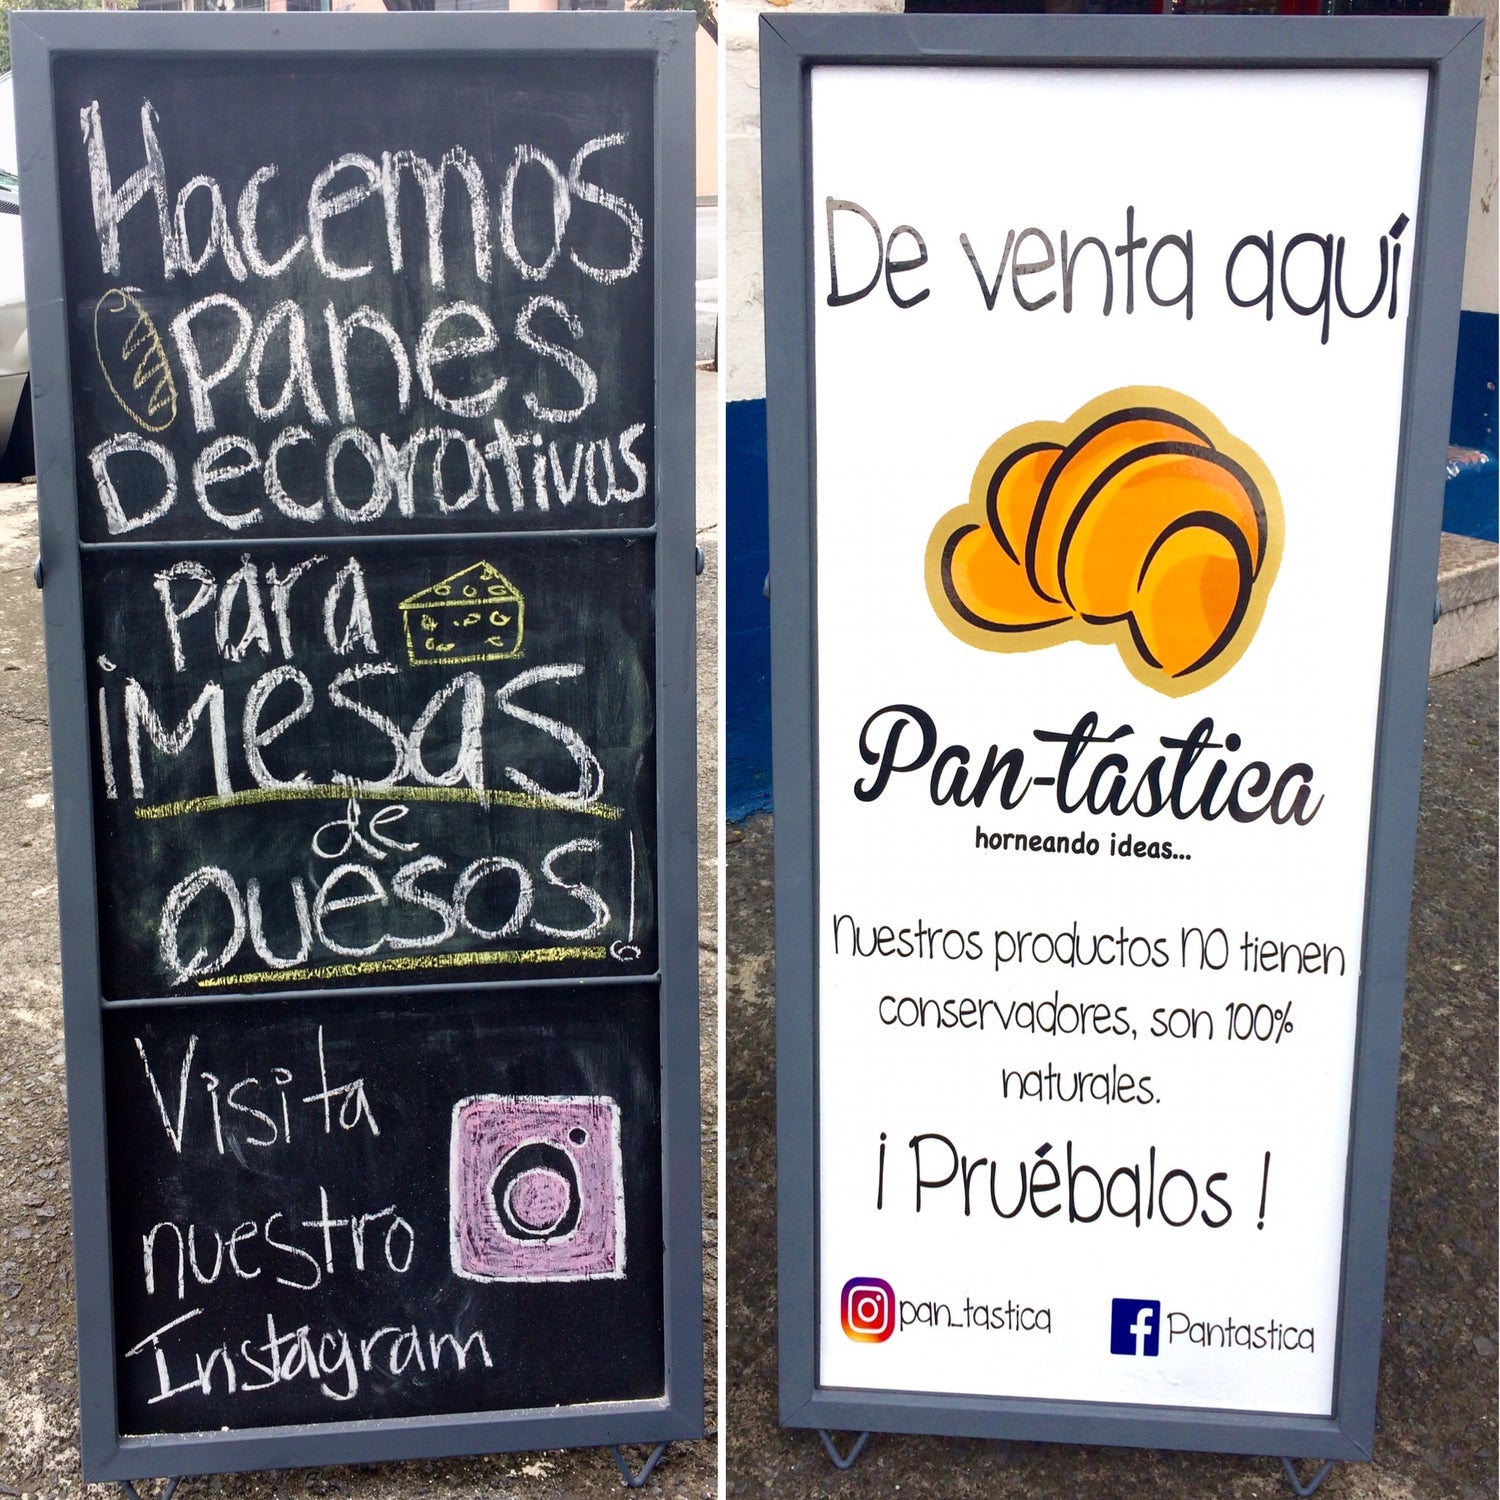 Hacemos
Panes
Decorativos
para
¡Mesas
de
Quesos!
Visita
nuestro
Instagram
De venta aquí
Pan-tástica
horneando ideas...
Nuestros productos NO tienen
conservadores, son 100%
naturales.
¡ Pruébalos !
pan_tastica
Pantastica